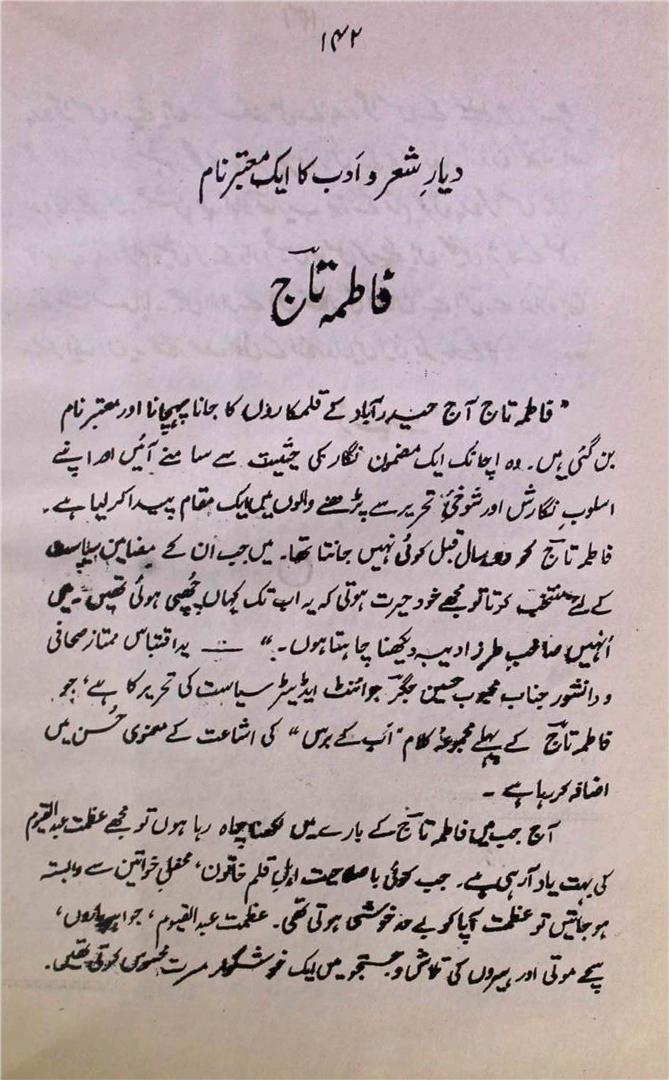 ۱۴۲
دیارِ شعر و اَدب کا ایک معتبر نام
فاطمہ تاج
" فاطمہ تاج آج حیدرآباد کے قلمکاروں کا جانا پہچانا اور معتبر نام
بن گئی ہیں۔ وہ اچانک ایک مضمون نگار کی حیثیت سے سامنے آئیں اور اپنے
اسلوبِ نگارش اور شوخیِٔ تحریر سے پڑھنے والوں میں ایک مقام پیدا کر لیا ہے۔
فاطمہ تاج کو دو سال قبل کوئی نہیں جانتا تھا۔ میں جب ان کے مضامین سیاست
کے لئے منتخب کرتا تو مجھے خود حیرت ہوتی کہ یہ اب تک کہاں چُھپی ہوئی تھیں۔ میں
اُنہیں صاحبِ طرز ادیبہ دیکھنا چاہتا ہوں۔" ــــ یہ اقتباس ممتاز صحافی
و دانشور جناب محبوب حسین جگر جوائنٹ ایڈیٹر سیاست کی تحریر کا ہے، جو
فاطمہ تاج کے پہلے مجموعۂ کلام "اَب کے برس" کی اشاعت کے معنوی حُسن میں
اضافہ کر رہا ہے ۔
آج جب میں فاطمہ تاج کے بارے میں لکھنا چاہ رہا ہوں تو مجھے عظمت عبدالقیوم
کی بہت یاد آ رہی ہے۔ جب کوئی با صلاحیت اہلِ قلم خاتون، محفلِ خواتین سے وابستہ
ہو جاتیں تو عظمت آپا کو بے حد خوشی ہوتی تھی۔ عظمت عبدالقیوم، جواہر پاروں،
سچے موتی اور ہیروں کی تلاش و جستجو میں ایک خوشگوار مسرت محسوس کرتی تھیں۔